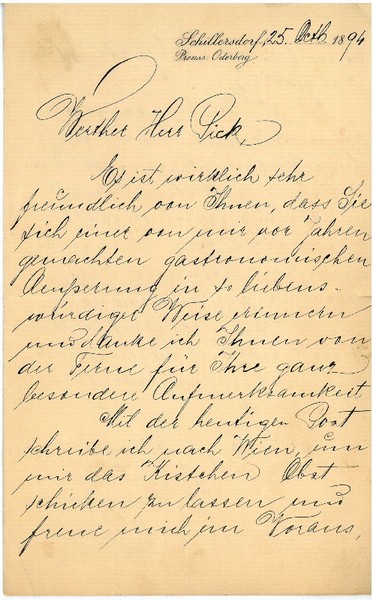 Schillersdorf, 25. Octb. 1894
Preuss: Oderberg.
Werther Herr Pick,
Es ist wirklich sehr
freundlich von Ihnen, dass Sie
sich einer von mir vor Jahren
gemachten gastronomischen
Aeusserung in so liebens-
würdiger Weise erinnern
und danke ich Ihnen von
der Ferne für Ihre ganz
besondere Aufmerksamkeit
Mit der heutigen Post
schreibe ich nach Wien, um
mir das Kistchen Obst
schicken zu lassen und
freue mich im Voraus,